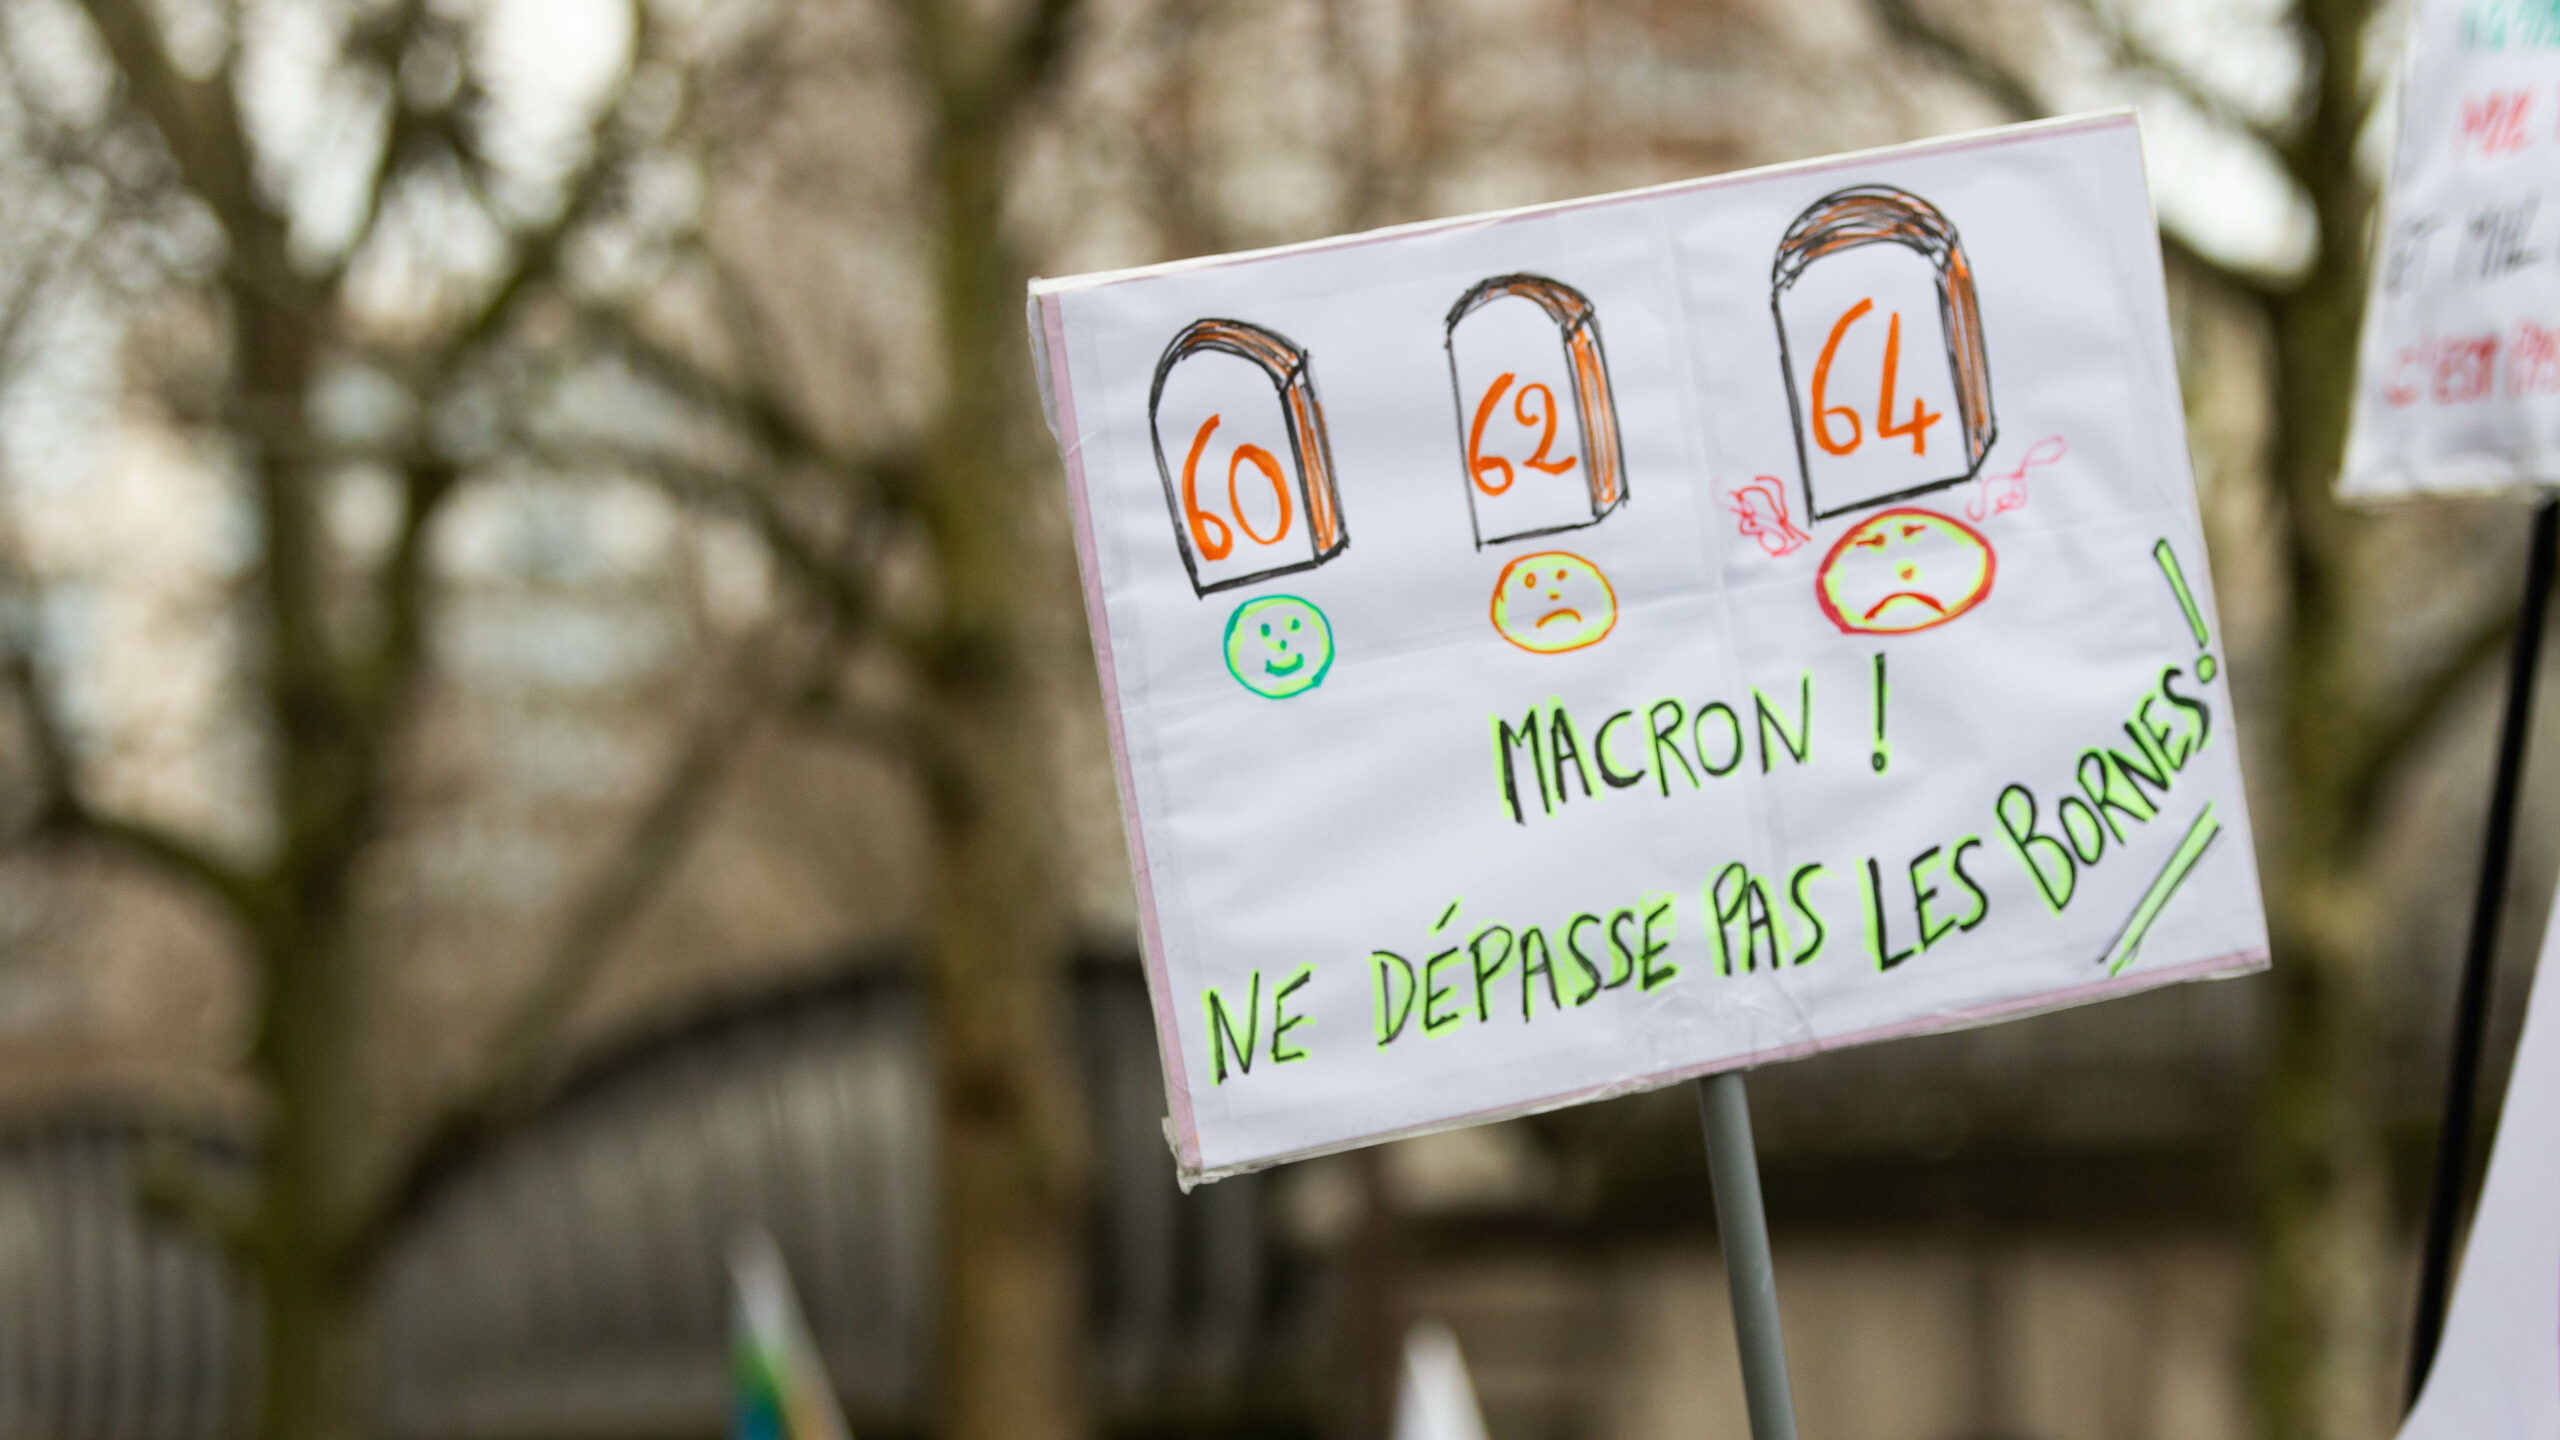 60 62 64
MACRON !
NE DÉPASSE PAS LES BORNES !
C'EST